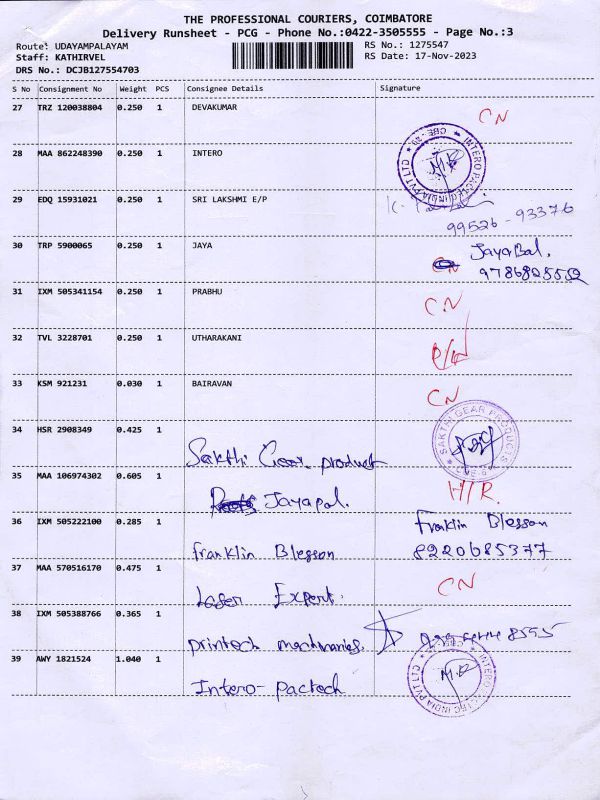 THE PROFESSIONAL COURIERS, COIMBATORE
Delivery Runsheet - PCG - Phone No.:0422-3505555 - Page No.:3
Route: UDAYAMPALAYAM RS No.: 1275547
Staff: KATHIRVEL RS Date: 17-Nov-2023
DRS No.: DCJB127554703
S No Consignment No Weight PCS Consignee Details Signature
27 TRZ 120038804 0.250 1 DEVAKUMAR CN
28 MAA 862248390 0.250 1 INTERO
29 EDQ 15931021 0.250 1 SRI LAKSHMI E/P
99526-93376
30 TRP 5900065 0.250 1 JAYA CN JayaBal.
9786825552
31 IXM 505341154 0.250 1 PRABHU CN
32 TVL 3228701 0.250 1 UTHARAKANI
33 KSM 921231 0.030 1 BAIRAVAN CN
34 HSR 2908349 0.425 1 Sakthi Gear product SAKTHI GEAR PRODUCTS
35 MAA 106974302 0.605 1 Jayapal. H/R.
36 IXM 505222100 0.285 1 franklin Blesson Franklin Blesson
8220685377
37 MAA 570516170 0.475 1 Laser Expert. CN
38 IXM 505388766 0.365 1 printech mechnaries.
39 AWY 1821524 1.040 1 Intero-pactech